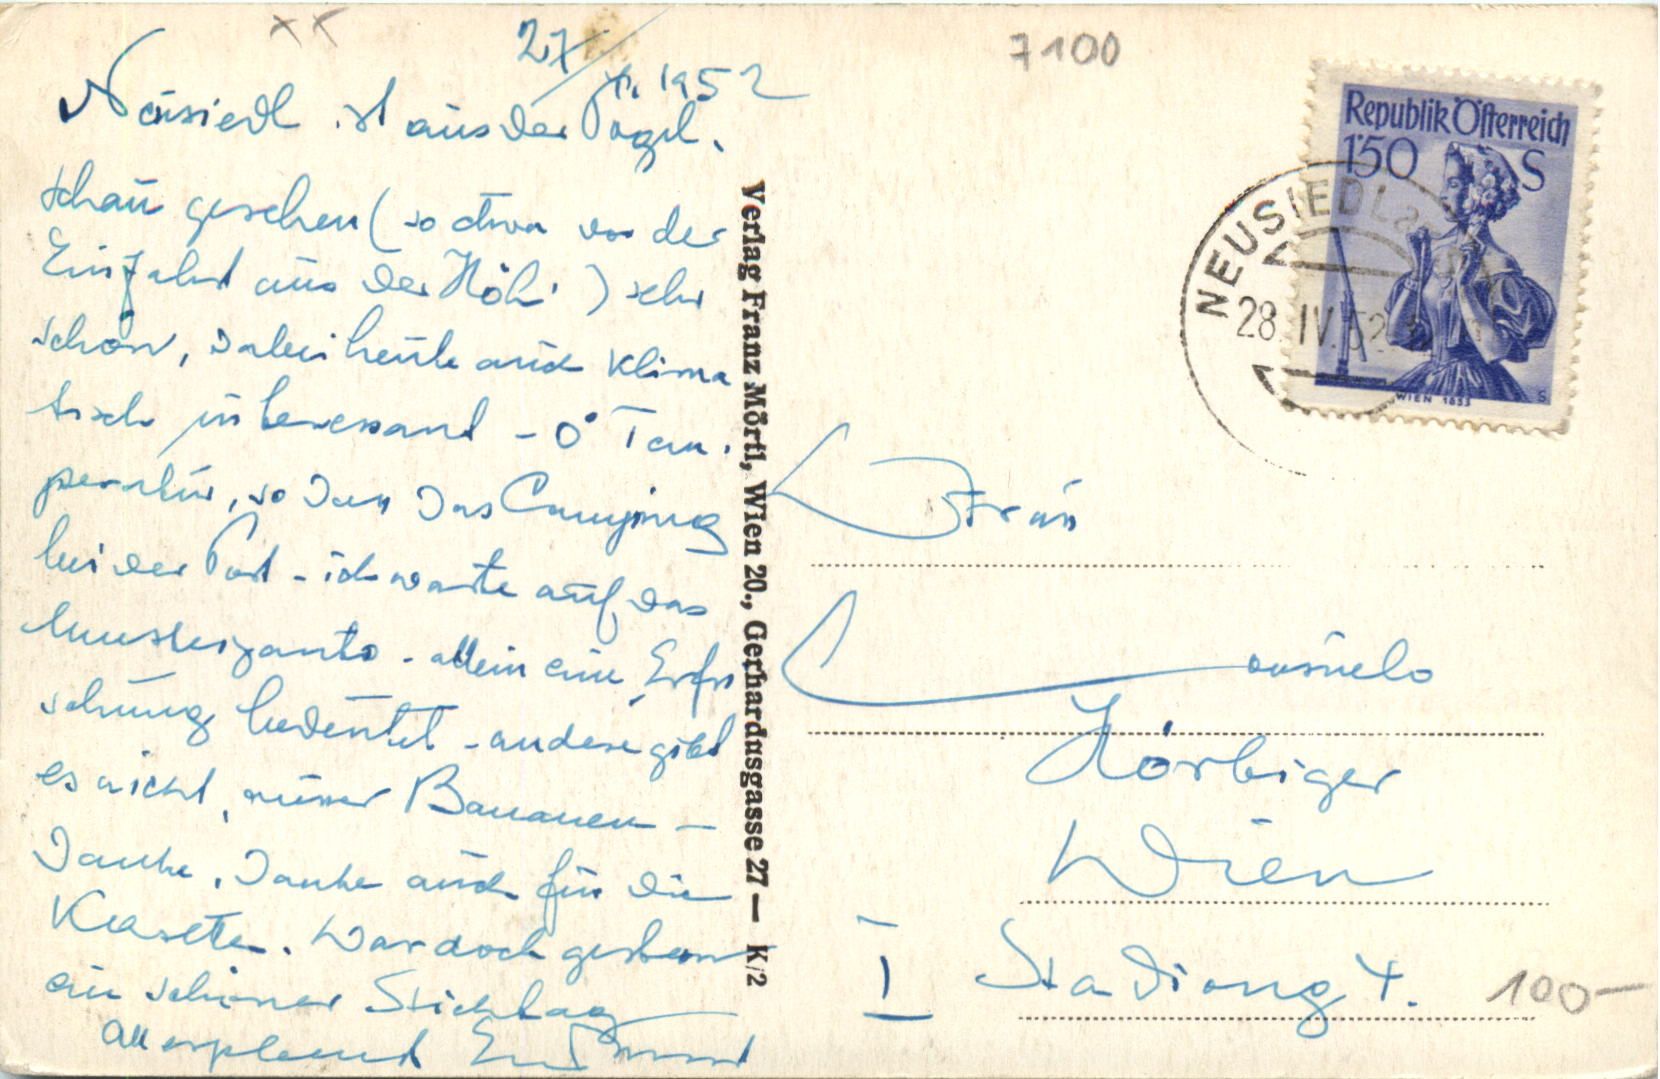 xx
27/IV. 1952
7100
Neusiedl ist aus der Vogel-
schau gesehen (so etwa vor der
Einfahrt aus der Höh') sehr
schön, dabei heute auch klima
tisch interessant - 0° Tem-
peratur, so dass das Camping
bei der Post - ich warte auf das
- allein eine Erfri
schung bedeutet - andere gibt
es nicht, ausser Bananen -
Danke, Danke auch für die
War doch gestern
ein schöner Stichtag
Republik Österreich
1'50 S
WIEN 1853
NEUSIEDL a
28. IV. 52
Verlag Franz Mörtl, Wien 20., Gerhardusgasse 27 — K/2
Frau
Consuelo
Hörbiger
Wien
I Stadiong 4.
100-